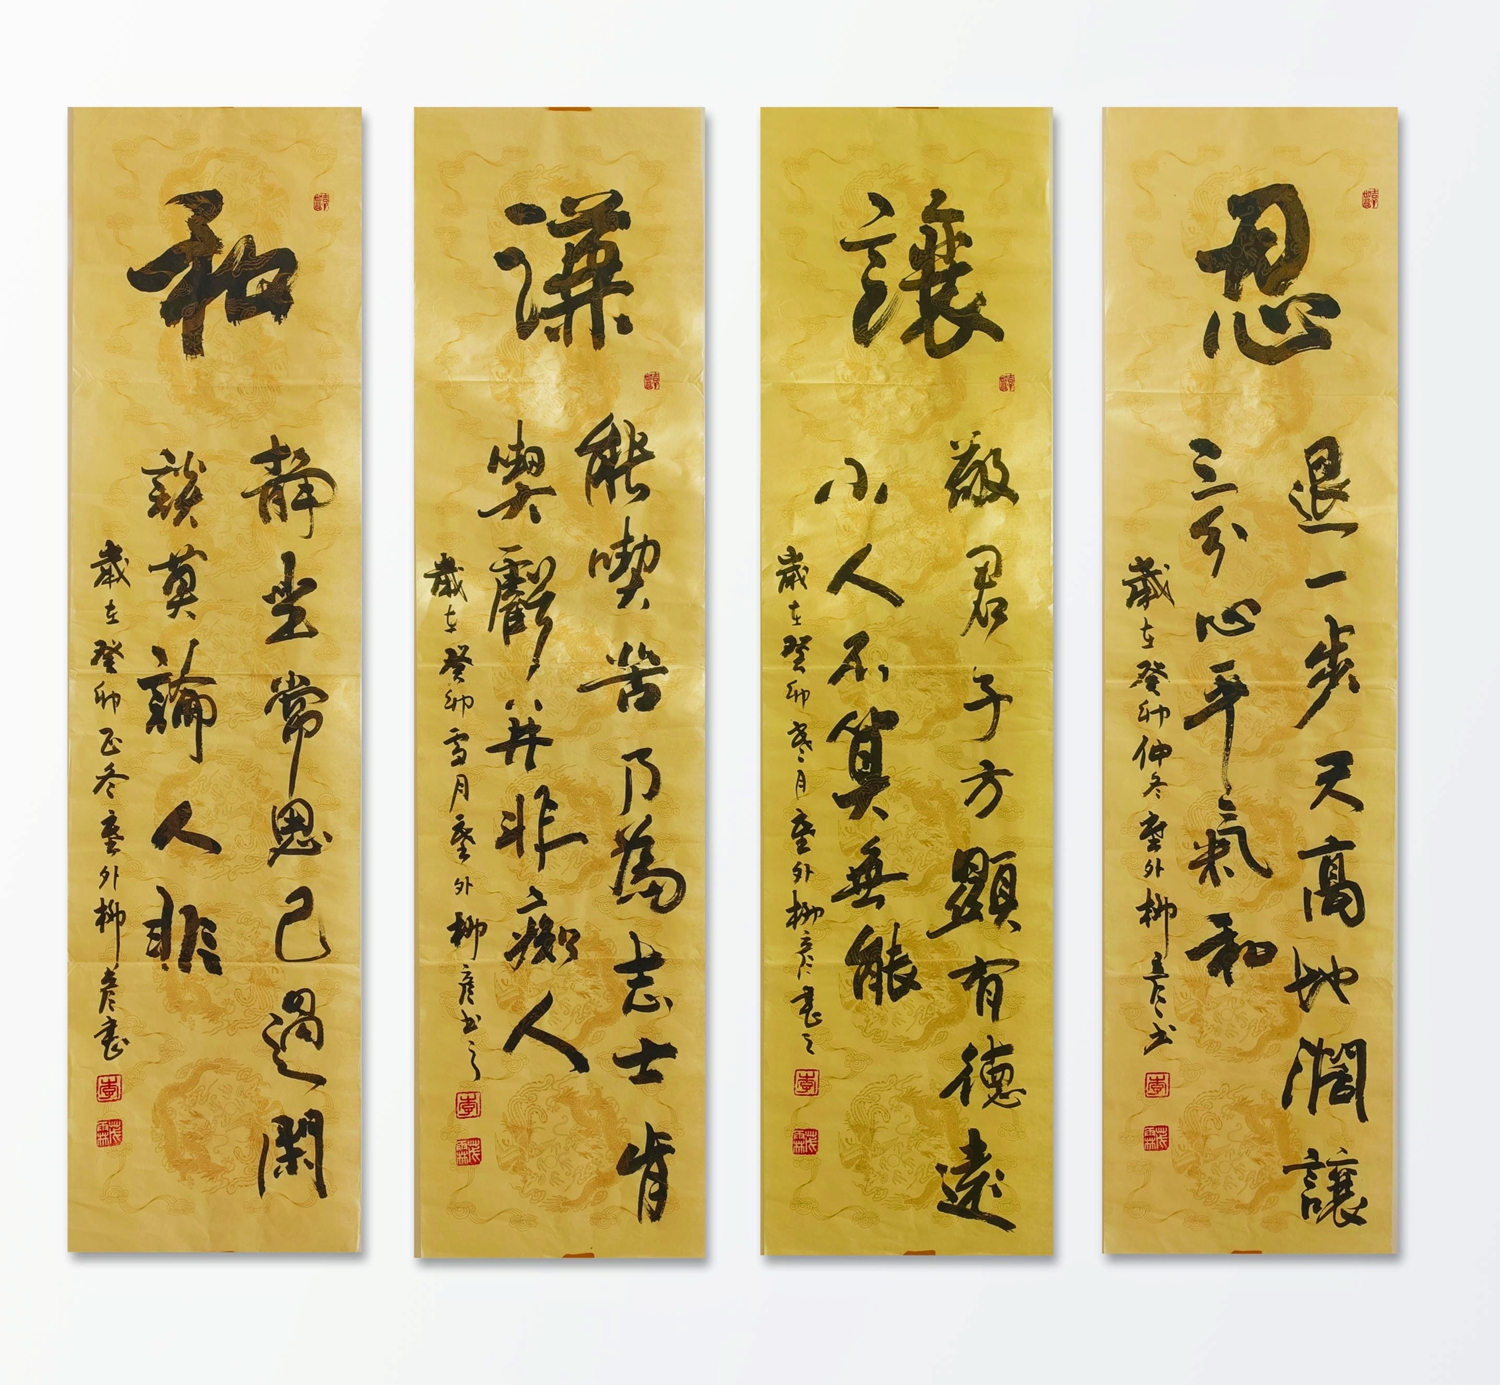 忍
退一步天高地濶讓
三分心平氣和
歲在癸卯仲冬塞外柳彥书
李
茂霖
讓
敬君子方顯有德遠
小人不算無能
歲在癸卯寒月塞外柳彥書之
李
茂霖
謙
能喫苦乃為志士肯
喫虧并非痴人
歲在癸卯雪月塞外柳彥书之
李
茂霖
和
靜坐常思己過閑
談莫論人非
歲在癸卯正冬塞外柳彥書
李
茂霖